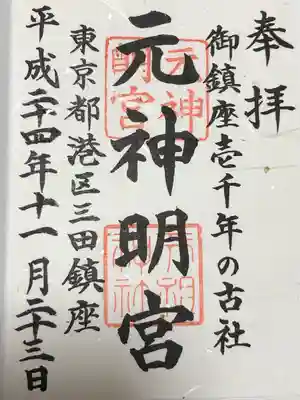 奉拝
御鎮座壱千年の古社
元神明宮
東京都港区三田鎮座
平成二十四年十一月二十三日
元神明宮